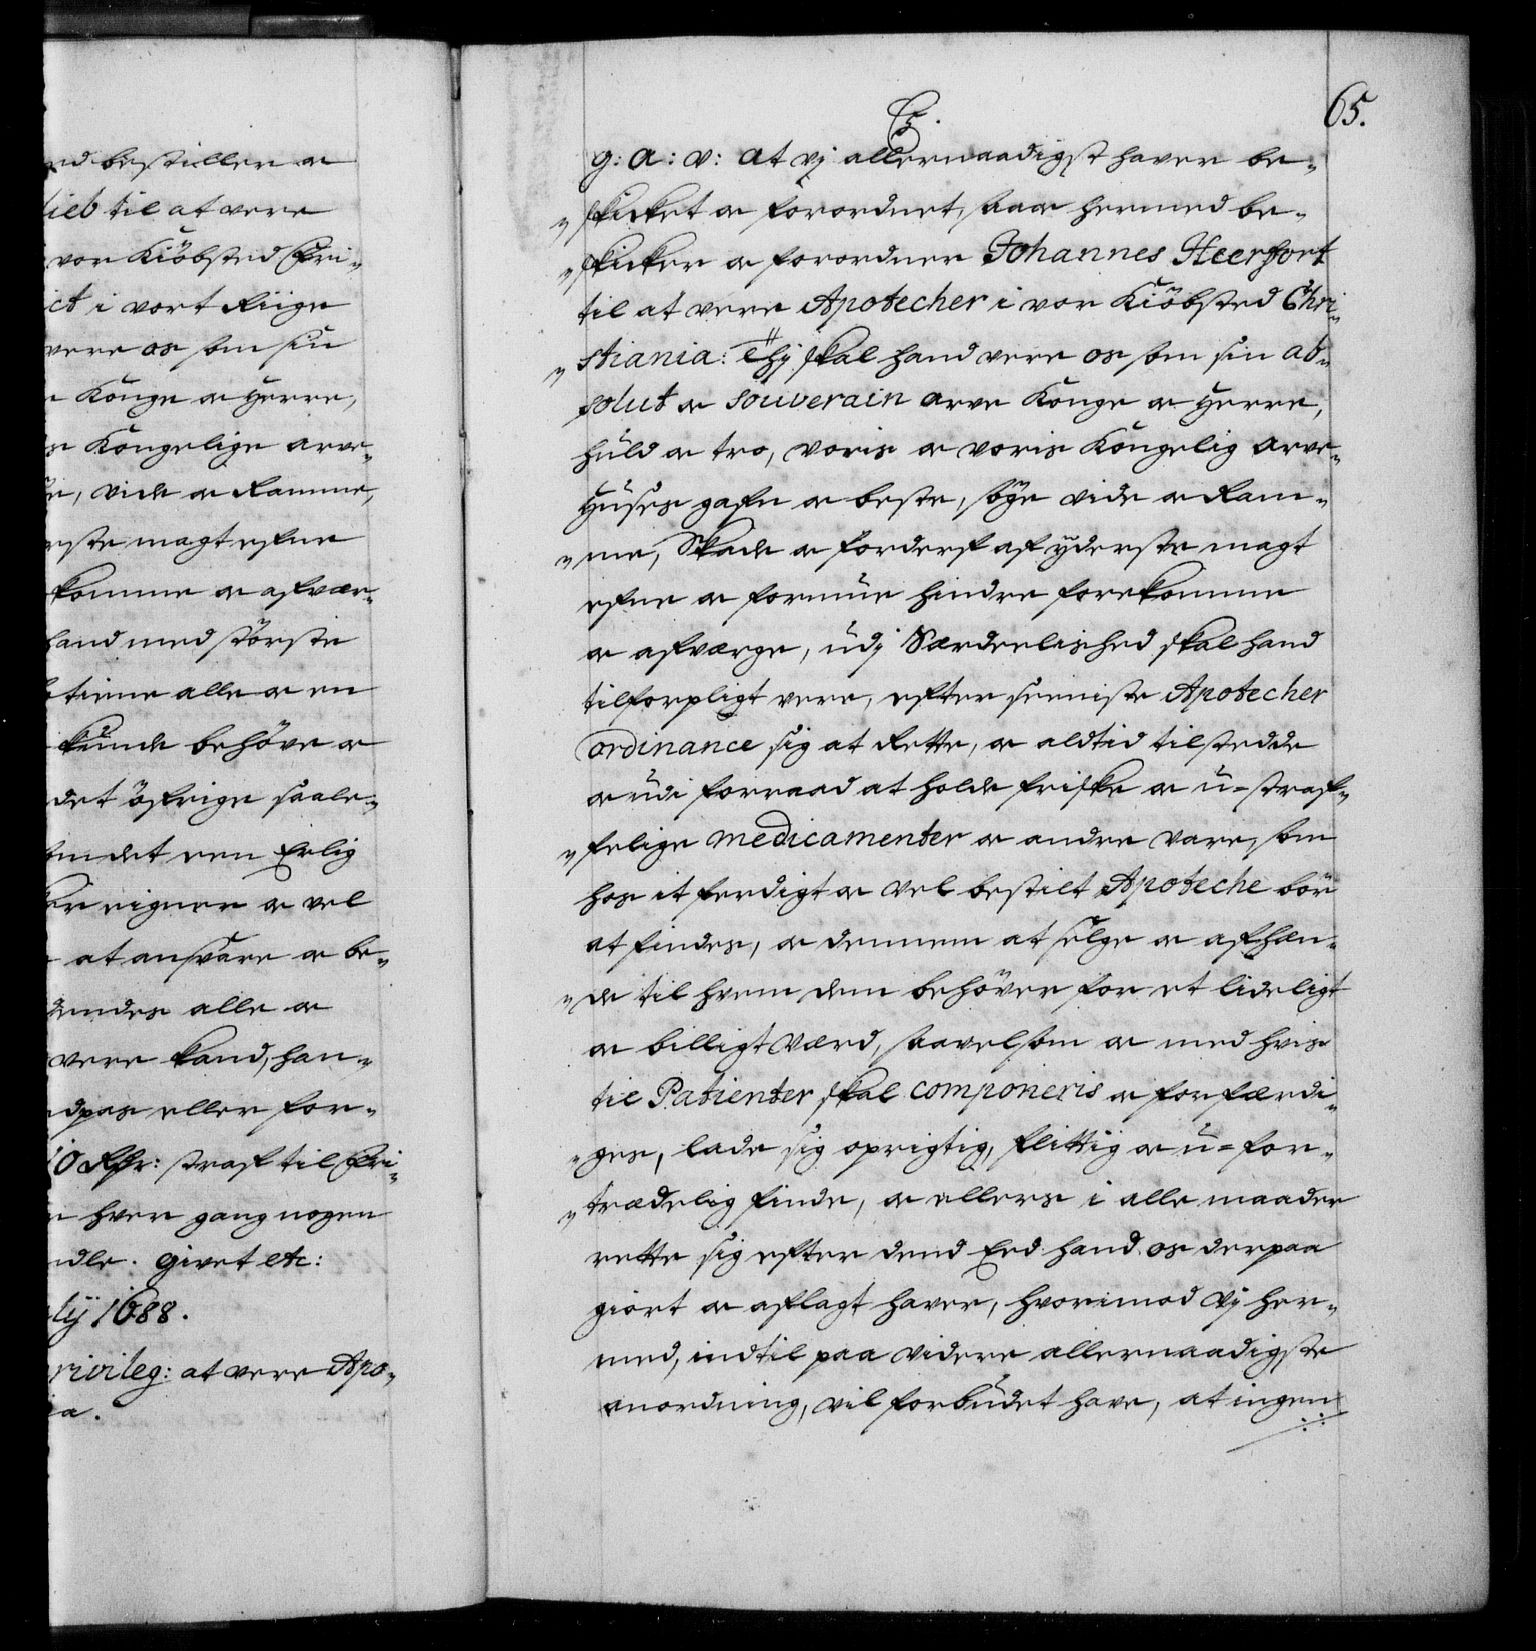 nd bestiller oc
lieb til at vere
vor Kiöbsted Chri-
ict i vort Riige
vere os som sin
Konge oc Herre,
Kongelige arve-
vide oc Ramme,
rste magt efne
komme oc afvær-
hand med störste
tierne alle oc en
kunde behöve oc
det öfrige saale-
om det een Erlig
eigner oc vel
at ansvare oc be-
alle oc
vere kand, han-
dpas eller for-
0 Rdr: straf til Chri-
hver gang nogen
ndle. Givet etc:
lij 1688.
rivileg: at vere Apo-
ia.
65.
C5.
g: a: v: at vj allernaadigst haver be-
skicket oc forordnet, saa oc hermed be-
skicker oc forordner Johannes Heerfort
til at vere Apotecher i vor Kiöbsted Chri-
stiania: Thj skal hand vere os som sin ab-
solut oc souverain arve Konge oc Herre,
huld oc tro, voris oc voris Kongelig arve-
Huses gafn oc beste, söge vide oc Ram-
me, Skade oc forderf af yderste magt
efne oc formue hindre forekomme
oc afværge, udj Særdeelished skal hand
tilforpligt vere, efter seeniste Apotecher
ordinance sig at Rette, oc altid tilstedde
oc udi forraad at holde friske oc u-straf-
felige medicamenter oc andre vare, som
hos it ferdigt oc vel bestilt Apoteche bör
at findes, oc dennem at selge oc afhæn-
de til hvem dem behöver for et lideligt
oc billigt værd, saavelsom oc med hvis
til Patienter skal componeris oc forfærdi-
ges, lade sig oprigtig, flittig oc u-for-
trædelig finde, oc ellers i alle maader
rette sig efter dend Eed hand os derpaa
giort oc aflagt haver, hvorimod Vj her-
med, indtil paa videre allernaadigste
anordning, vil forbudet have, at ingen